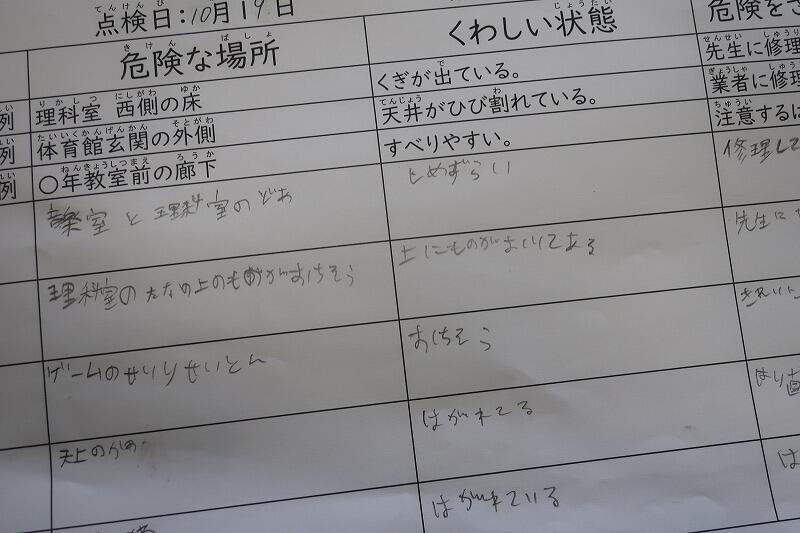 点検日：10月19日
危険な場所 くわしい状態 危険をさ
例 理科室 西側の床 くぎが出ている。 先生に修理
例 体育館玄関の外側 天井がひび割れている。 業者に修理
例 〇年教室前の廊下 すべりやすい。 注意するは
音楽室と理科室のどあ しめずらい 修理して
理科室のたなの上のものがおちそう 上にものがおいてある 先生に
ゲームのせいりせいとん おちそう きれいに
天上のかめ はがれてる はり直
はがれている は